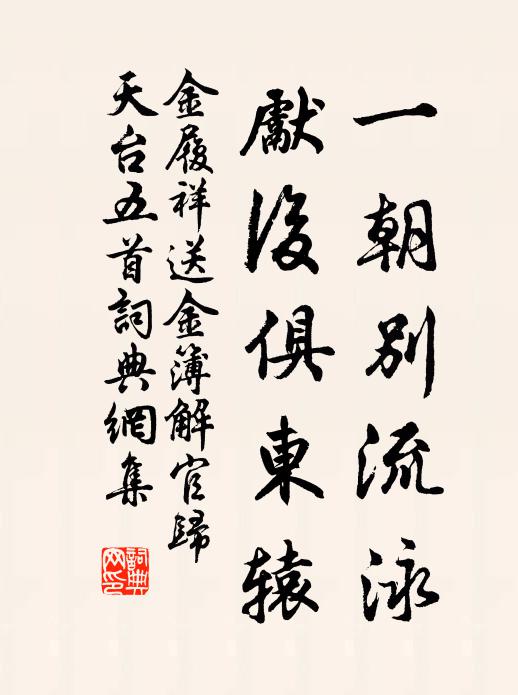 一朝別流泳
獻後俱東辕
金履祥送金簿解官歸
天台五首詞典網集
詞典
网印